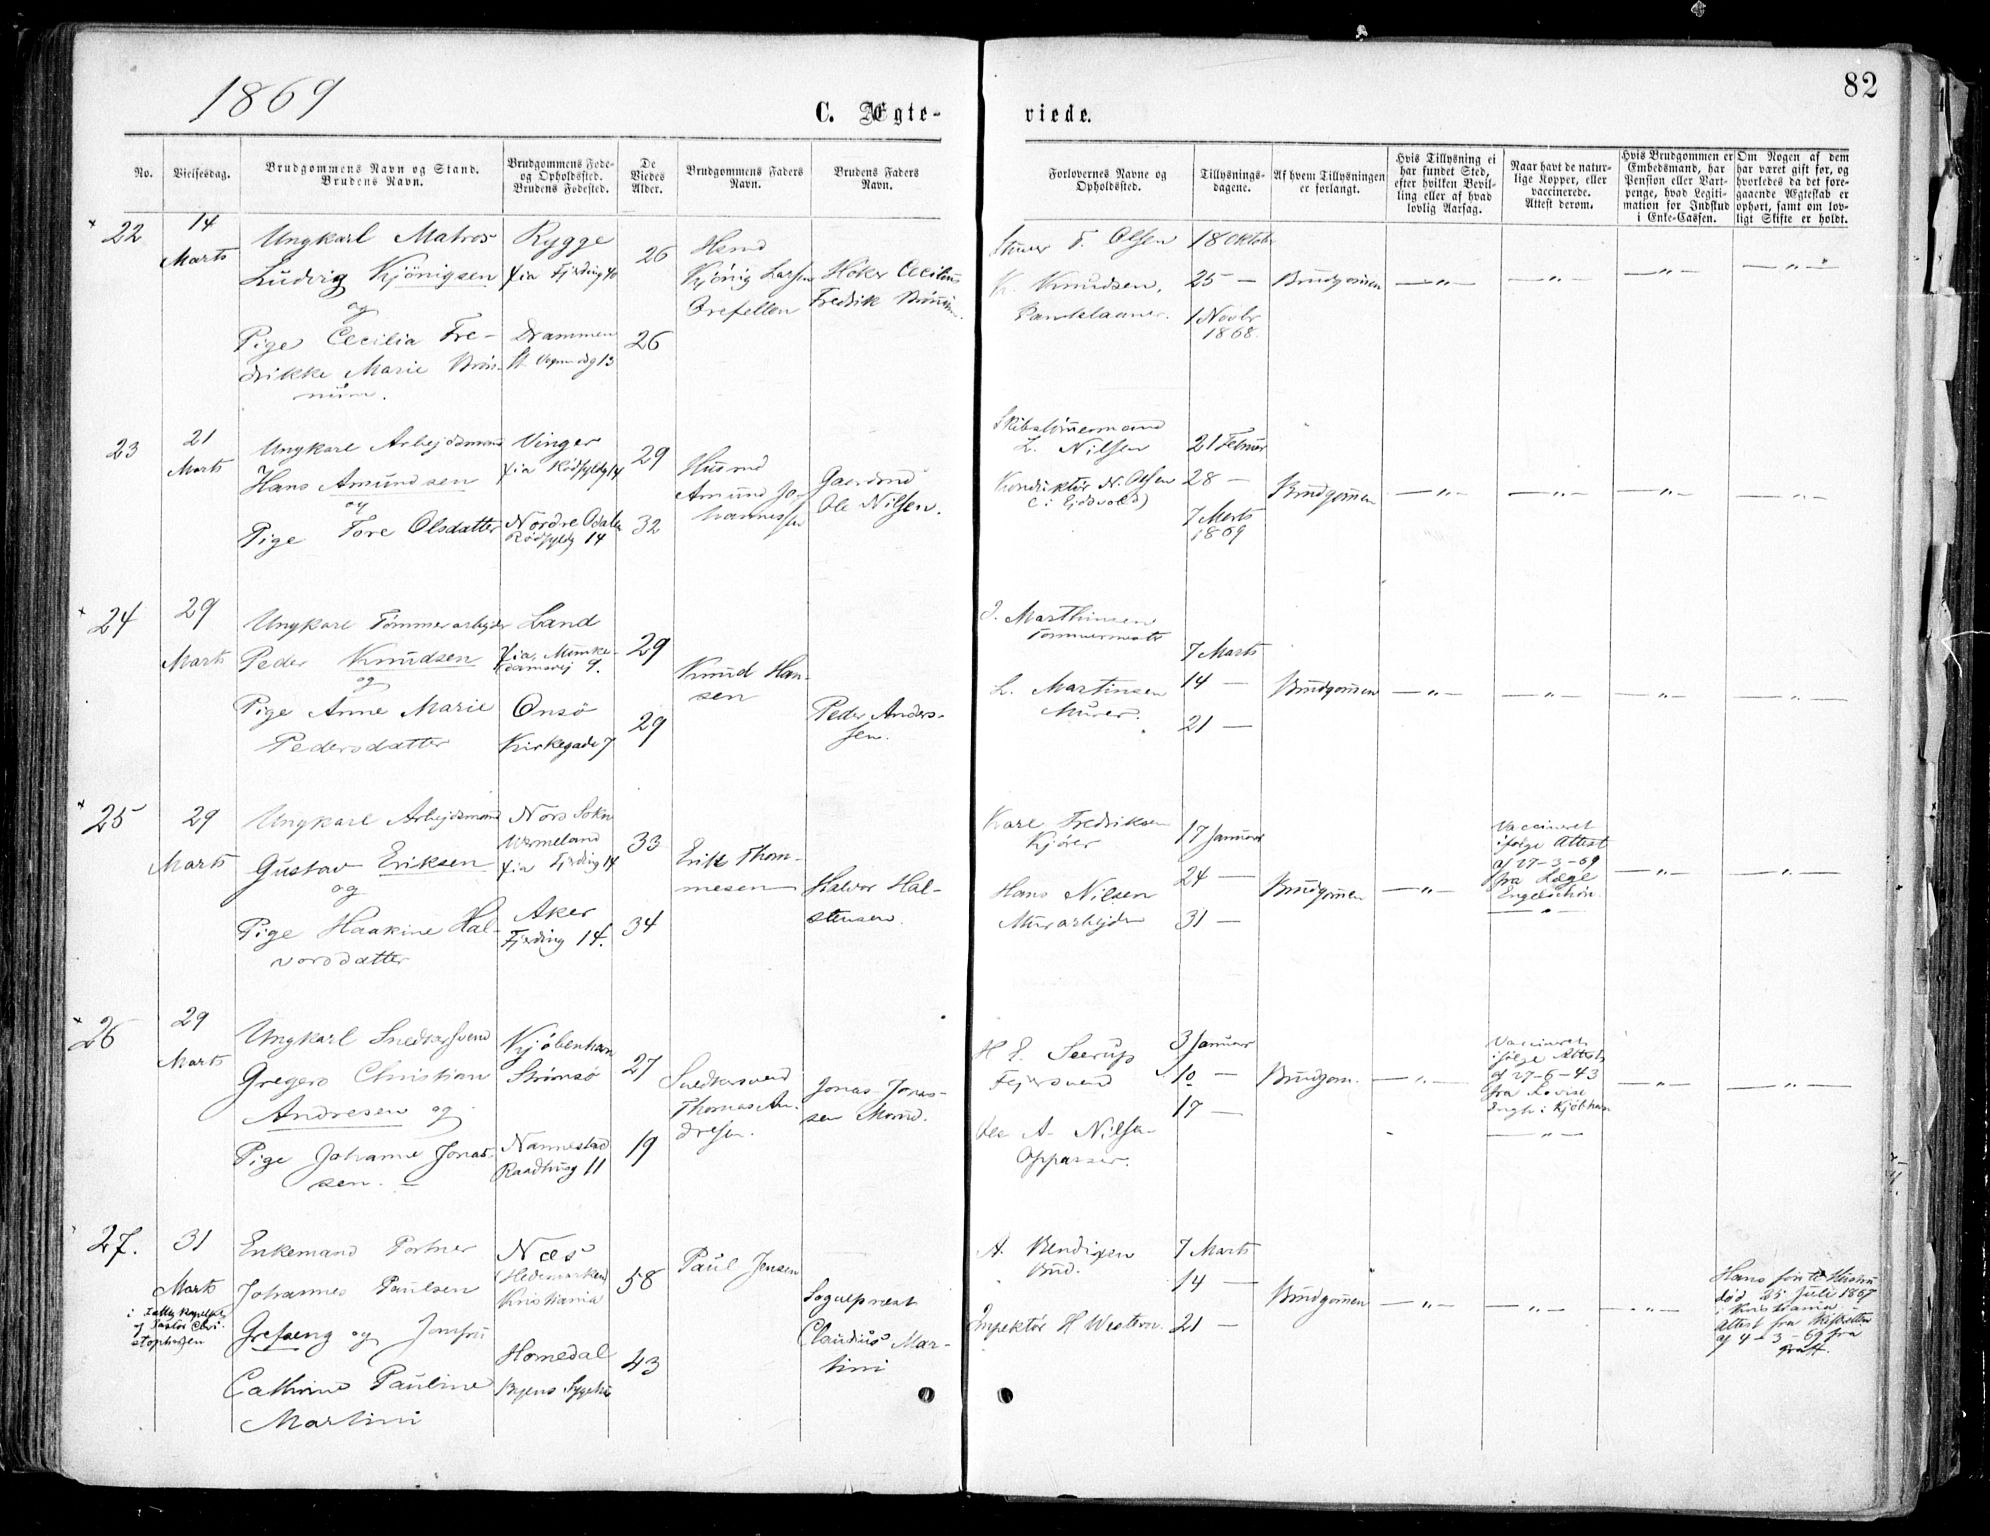 1869
82
C. Ægte-
viede.
No.
Vielsesdag.
Brudgommens Navn og Stand.
Brudens Navn.
Brudgommens Føde-
og Opholdssted.
Brudens Fødested.
De
Viedes
Alder.
Brudgommens Faders
Navn.
Brudens Faders
Navn.
Forlovernes Navne og
Opholdssted.
Tillysnings-
dagene.
Af hvem Tillysningen
er forlangt.
Hvis Tillysning ei
har fundet Sted,
efter hvilken Bevil-
ling eller af hvad
lovlig Aarsag.
Naar havt de natur-
lige Kopper, eller
vaccinerede.
Attest derom.
Hvis Brudgommen er
Embedsmand, har
Pension eller Vart-
penge, hvad Legiti-
mation for Indskud
i Enke-Cassen.
Om Nogen af dem
har været gift før, og
hvorledes da det fore-
gaaende Ægteskab er
ophørt, samt om lov-
ligt Skifte er holdt.
22
14
Marts
Ungkarl Matros
Ludvig Kjönigsen
og
Pige Cecilia Fre-
drikke Marie Brön-
num.
Rygge
Xia Fjerding 40
Drammen
26
26
Kjönig Larsen
Orefellen
Höker Cecilius
Fredrik Brönnum.
F. Olsen
K. Knudsen.
18 Oktobr
25 —
1 Novbr
1868.
Brudgommen
— „ —
— „ —
— „ —
— „ —
23
21
Marts
Ungkarl Arbejdsmand
Hans Amundsen
og
Pige Tore Olsdatter
Vinger
Xia Rödfyldg 14
Nordre Odalen
Rödfyldg 14
29
32
Husmd
Amund Jo-
hannessen
Gaardmd
Ole Nilsen.
Skibstömmermand
L. Nilsen
Konduktör N. Olsen
(i Eidsvold)
21 Februar
28 —
7 Marts
1869
Brudgommen
— „ —
— „ —
— „ —
— „ —
24
29
Marts
Ungkarl Tömmerarbejder
Peder Knudsen
og
Pige Anne Marie
Pedersdatter
Land
Xia, Munke-
damsvej 9.
Onsö
Kirkegade 7
29
29
Knud Han-
sen
Peder Anders-
sen.
J. Marthinsen
Tömmermester
L. Martinsen
Murer.
7 Marts
14 —
21 —
Brudgommen
— „ —
— „ —
— „ —
— „ —
25
29
Marts
Ungkarl Arbejdsmand
Gustav Eriksen
og
Pige Haakine Hal-
vorsdatter
Nors Sokn
Wermeland
Xia Fjerding 14
Aker
Fjerding 14.
33
34
Erik Thom-
mesen
Halvor Hal-
stensen.
Karl Fredriksen
Kjörer
Hans Nilsen
Murarbejder
17 Januar
24 —
31 —
Brudgommen
— „ —
Vaccineret
ifølge Attest
af 27-3-69
fra Læge
Engelschiön.
— „ —
— „ —
— „ —
26
29
Marts
Ungkarl Snedkersvend
Gregers Christian
Andresen og
Pige Johanne Jonas-
sen.
Kjöbenhavn
Strömsö
Nannestad
Raadhusg 11
27
19
Snedkersvend
Thomas An-
dresen.
Jonas Jonas-
sen Morud.
H E. Seerup
Fejersvend
Ole A. Nilsen
Oppasser.
3 Januar
10 —
17 —
Brudgom.
— „ —
Vaccineret
ifølge Attest
af 27-6-43
fra Lovise
i Kjöbhavn
— „ —
— „ —
— „ —
27.
31
Marts
Enkemand Portner
Johannes Paulsen
Grefseng og Jomfru
Cathrine Pauline
Martini
Næs
(Hedemarken)
Kristiania
Homedal
Byens Sygehus
58
43
Paul Jensen
Sogneprest
Claudius Mar-
tini
A. Bendixen
Bud.
Inspektör H Western.
7 Marts
14 —
21 —
Brudgommen
— „ —
— „ —
— „ —
Hans første Hustru
död 25 Juli 1867
i Kristiania -
Attest fra Skifteretten
af 4-3-69 fra